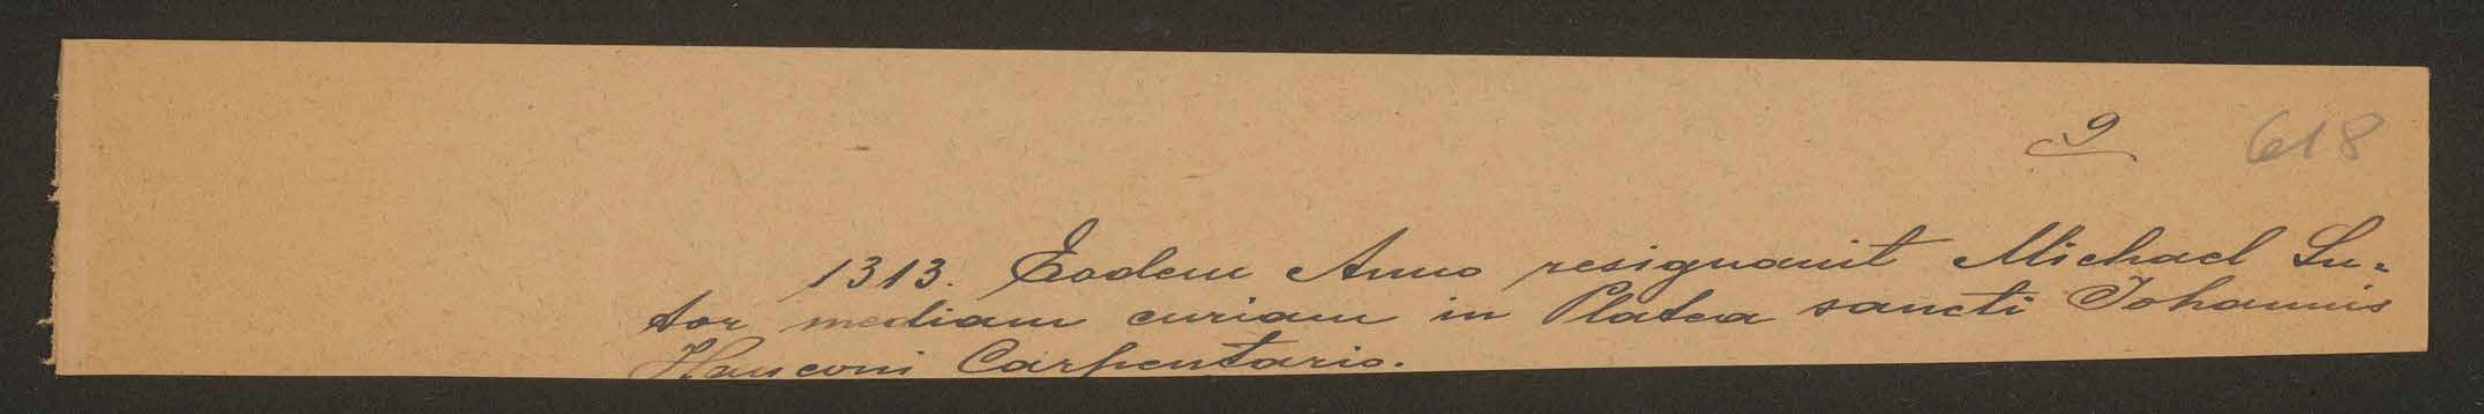 9 618
1313. Eodem Anno resignauit Michael Su-
tor mediam curiam in Platea sancti Johannis
Hanconi Carpentario.